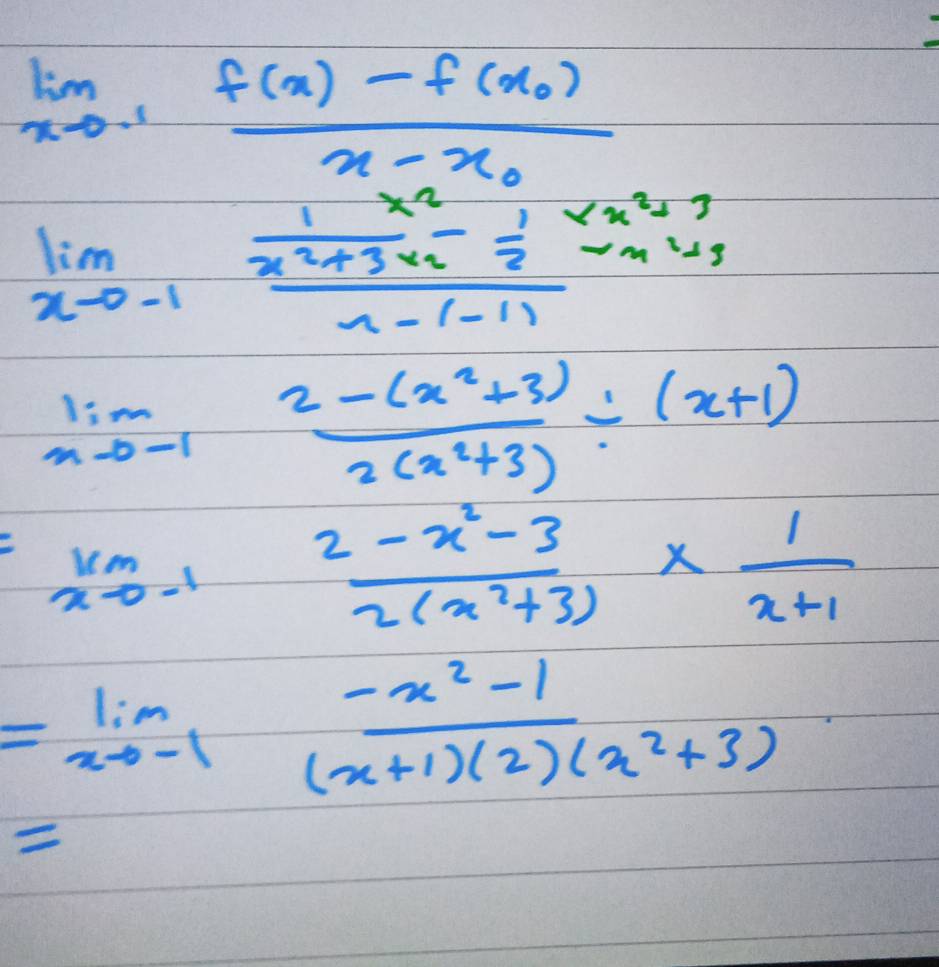 lim x→-1 f(x) - f(x₀) / x - x₀
lim x→-1 (1/(x²+3) ×2 ×2 - 1/2 ×x²+3 ×x²+3) / x-(-1)
lim x→-1 2-(x²+3) / 2(x²+3) ÷ (x+1)
= lim x→-1 2-x²-3 / 2(x²+3) × 1 / x+1
= lim x→-1 -x²-1 / (x+1)(2)(x²+3)
=